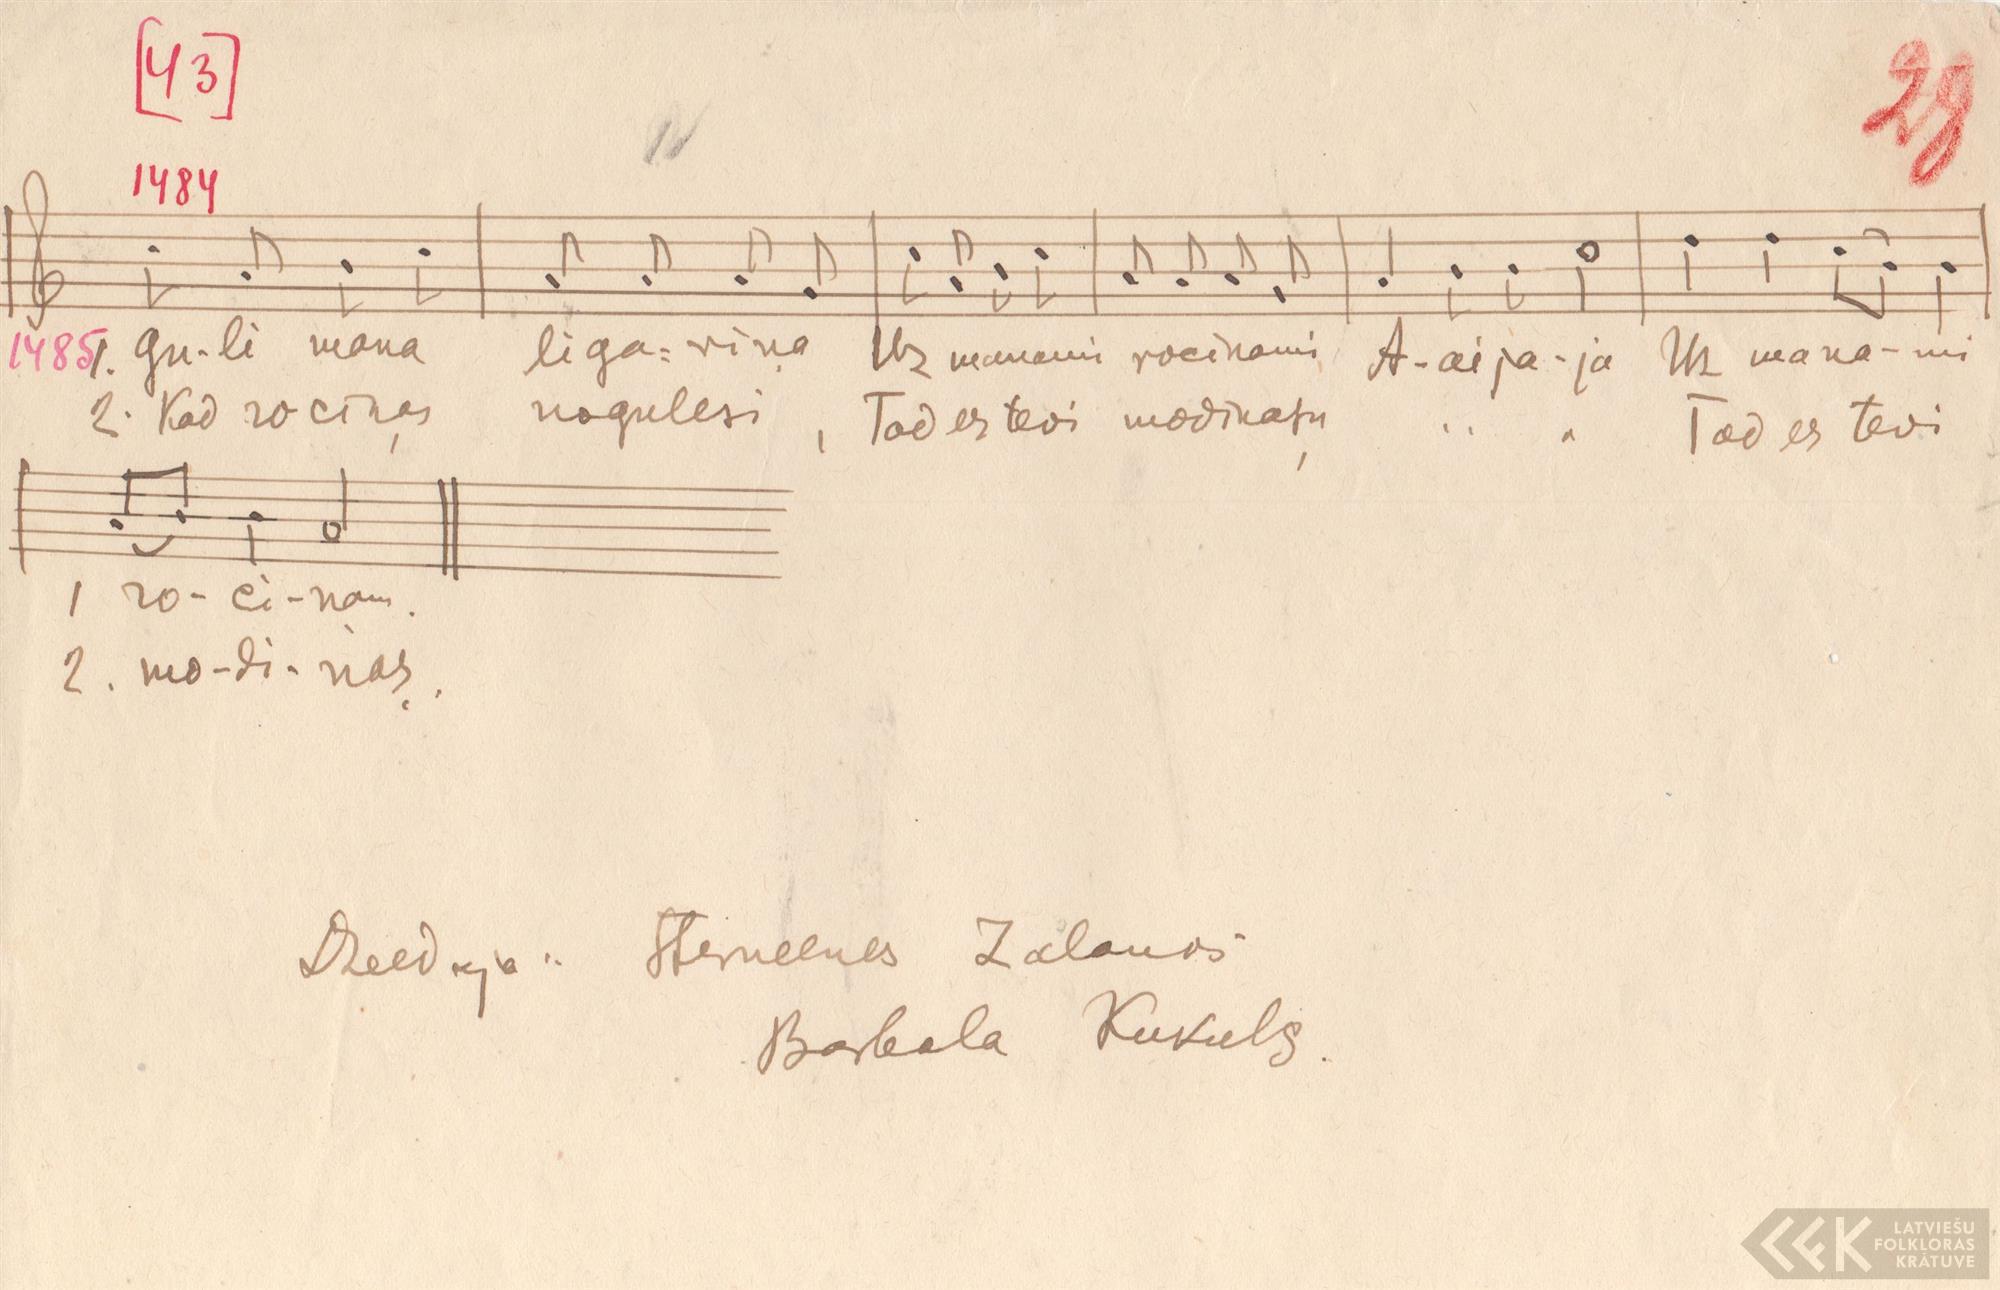 [43]
29
1484
1485 1. Gu-li mana liga-viņa Uz manami rociņami A-aija-ja Uz mana-mi
2. Kad rociņas nogulesi, Tad es tevi modinaşu " " Tad es tevi
1 ro-ci-ņam.
2. mo-di-naş.
Dzeedaja: Sterneenes Zalamos
Barbala Kukuls.
LATVIEŠU
FOLKLORAS
KRĀTUVE